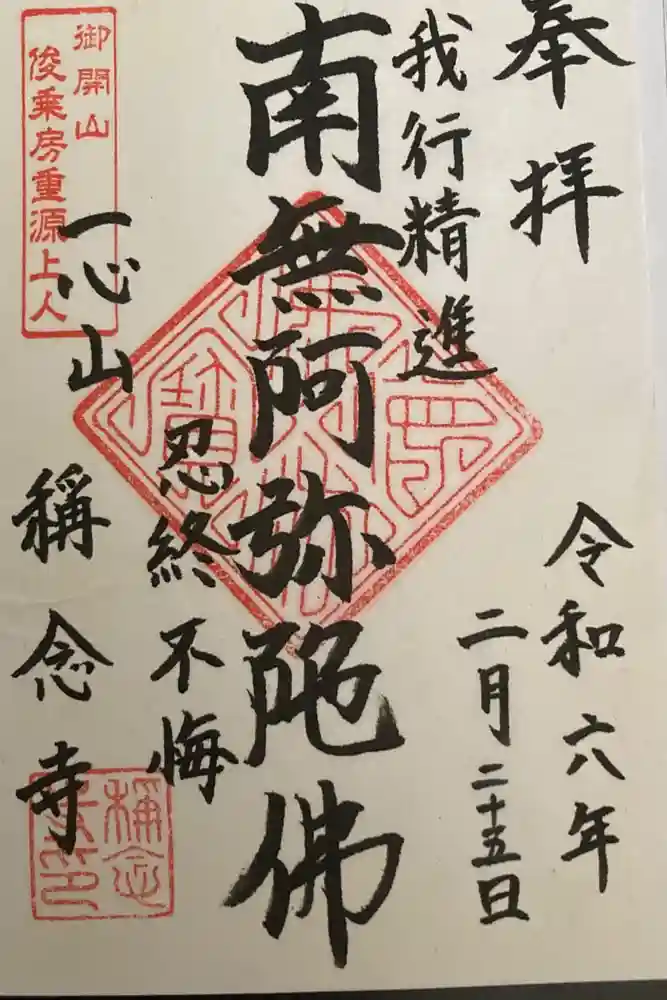 奉拝
令和六年
二月二十五日
我行精進
南無阿弥陀佛
忍終不悔
御開山
俊乗房重源上人
一心山
稱念寺
稱念